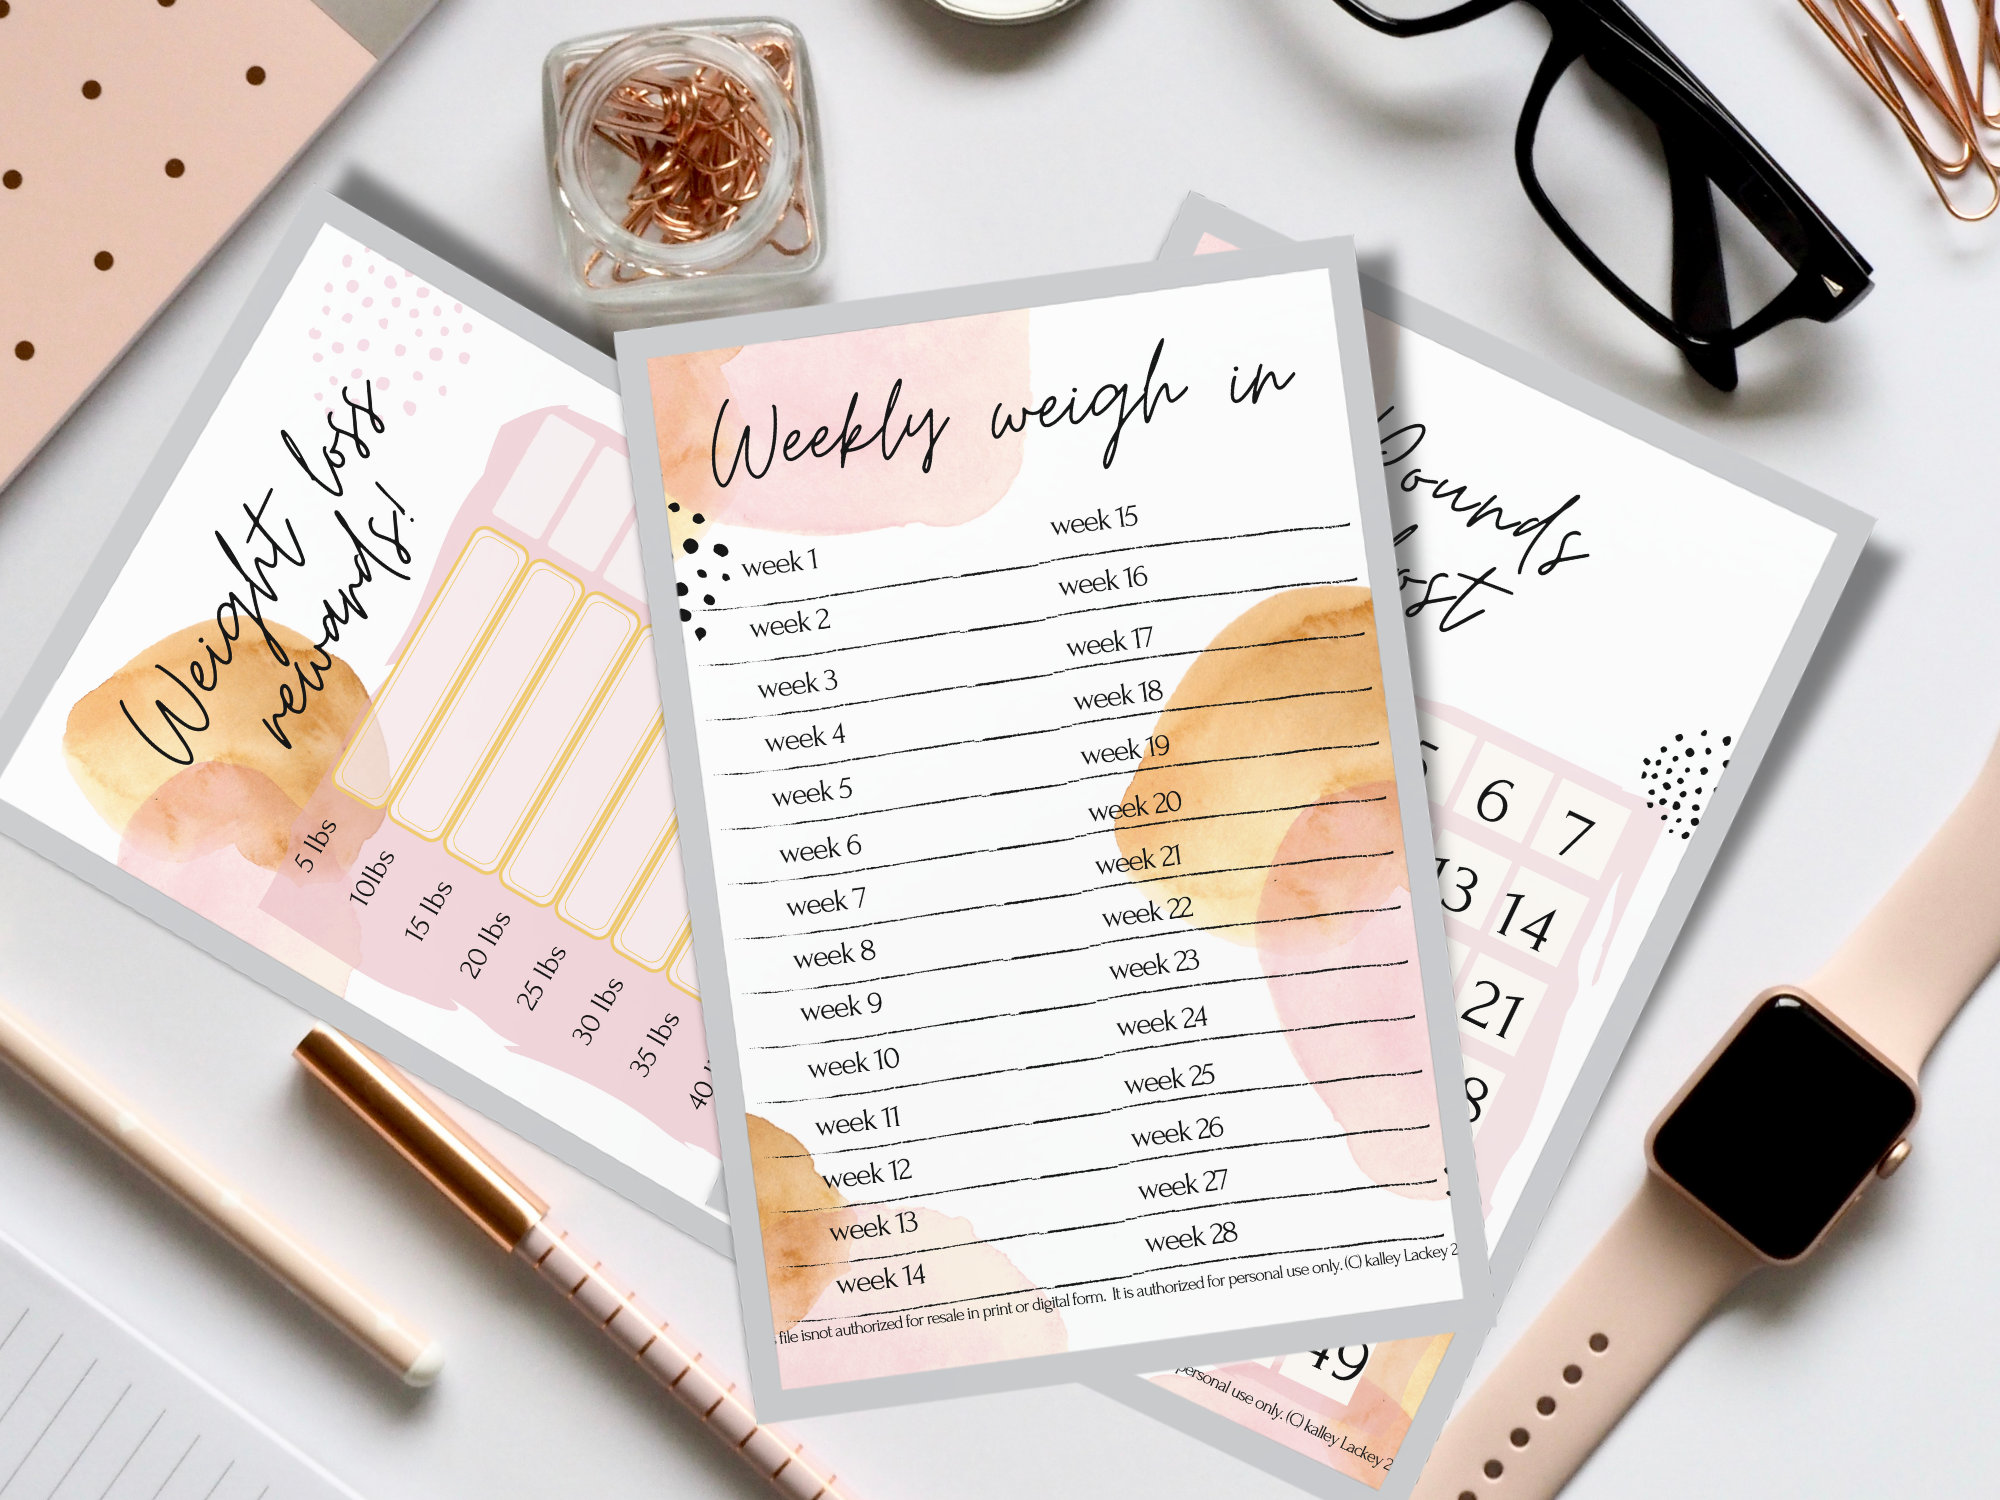 Weight loss
rewards!
5 lbs
10lbs
15 lbs
20 lbs
25 lbs
30 lbs
35 lbs
40
Weekly weigh in
week 1
week 2
week 3
week 4
week 5
week 6
week 7
week 8
week 9
week 10
week 11
week 12
week 13
week 14
week 15
week 16
week 17
week 18
week 19
week 20
week 21
week 22
week 23
week 24
week 25
week 26
week 27
week 28
file isnot authorized for resale in print or digital form. It is authorized for personal use only. (C) kalley Lackey 2
Pounds
lost
6 7
13 14
21
8
49
personal use only. (C) kalley Lackey 2